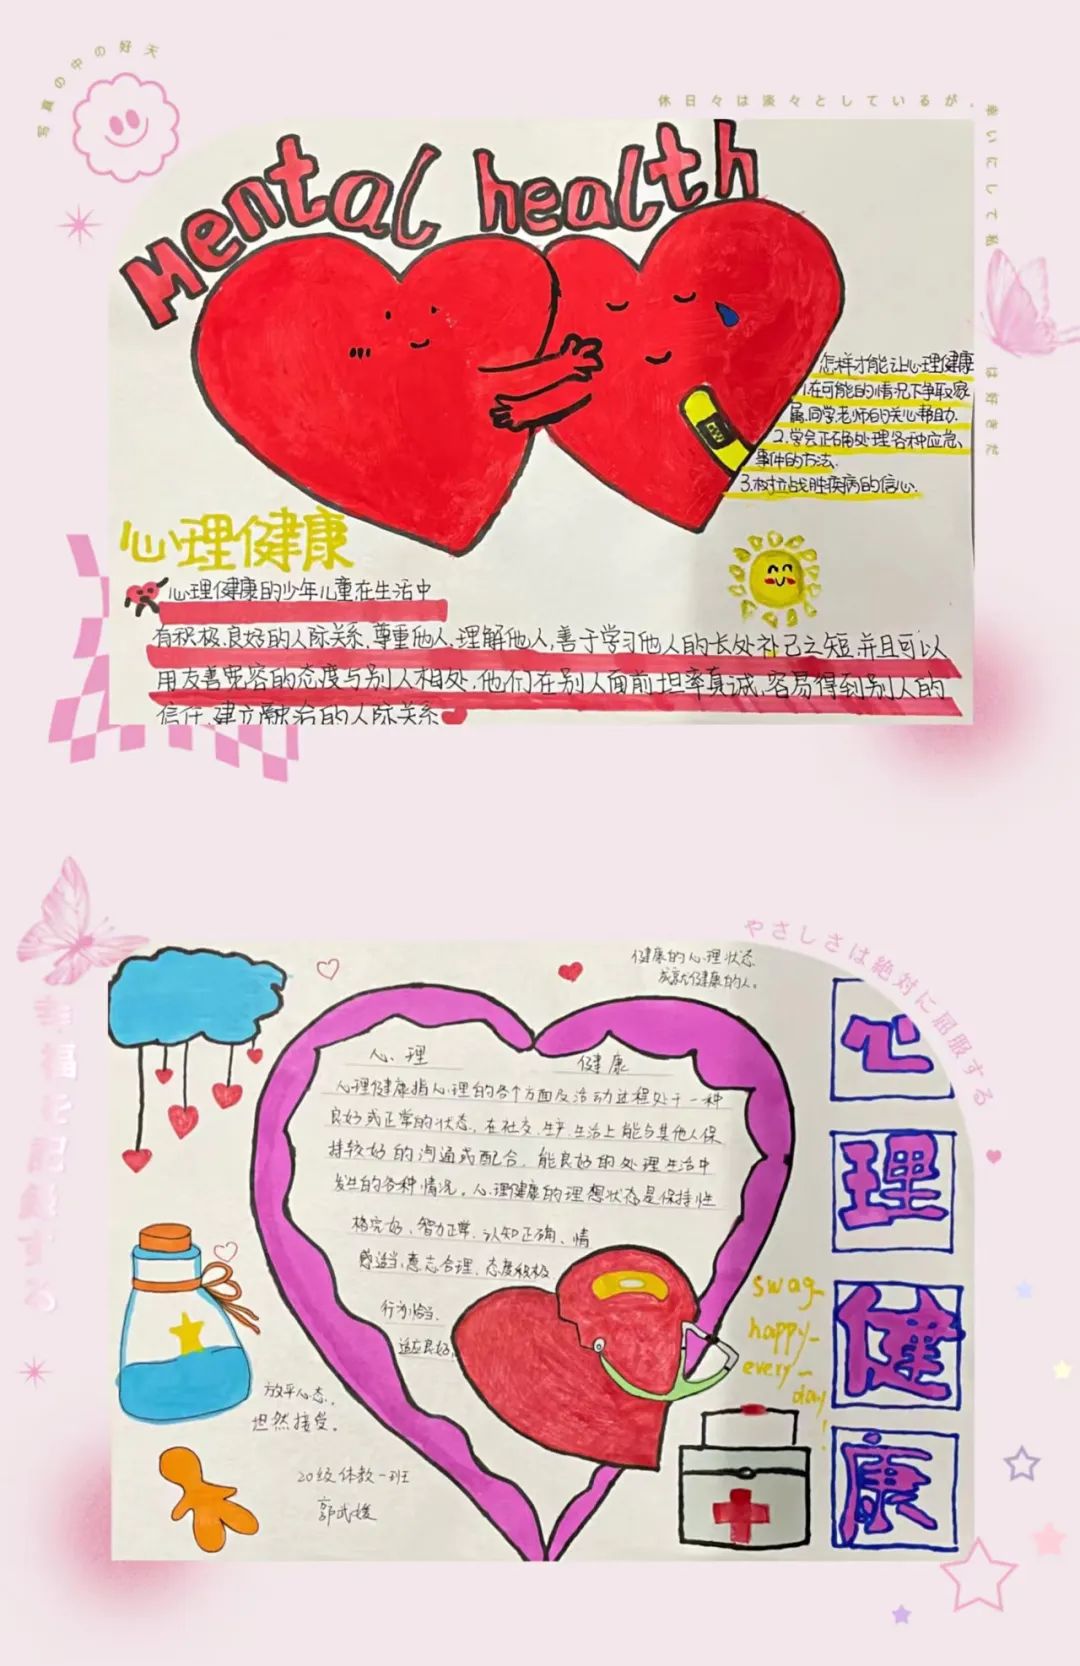 写真の中の好天
休日々は淡々としているが、
幸いにして私
は好きだ
Mental health
怎样才能让心理健康
1.在可能的情况下争取家
属、同学、老师的关心帮助.
2.学会正确处理各种应急、
事件的方法.
3.树拉战胜疾病的信心.
心理健康
心理健康的少年儿童在生活中
有积极、良好的人际关系,尊重他人、理解他人,善于学习他人的长处补己之短.并且可以
用友善宽容的态度与别人相处.他们在别人面前坦率真诚.容易得到别人的
信任.建立融洽的人际关系
やさしさは絶対に屈服する
健康的心理状态
成就健康的人。
心理 健康
心理健康指心理的各个方面及活动过程处于一种
良好或正常的状态。在社交、生产、生活上能与其他人保
持较好的沟通或配合，能良好的处理生活中
发生的各种情况。心理健康的理想状态是保持性
格完好、智力正常、认知正确、情
感适当、意志合理、态度积极、
行为恰当、
适应良好。
心
理
健
康
swag
happy
every
day!
放平心态，
坦然接受。
20级体教一班